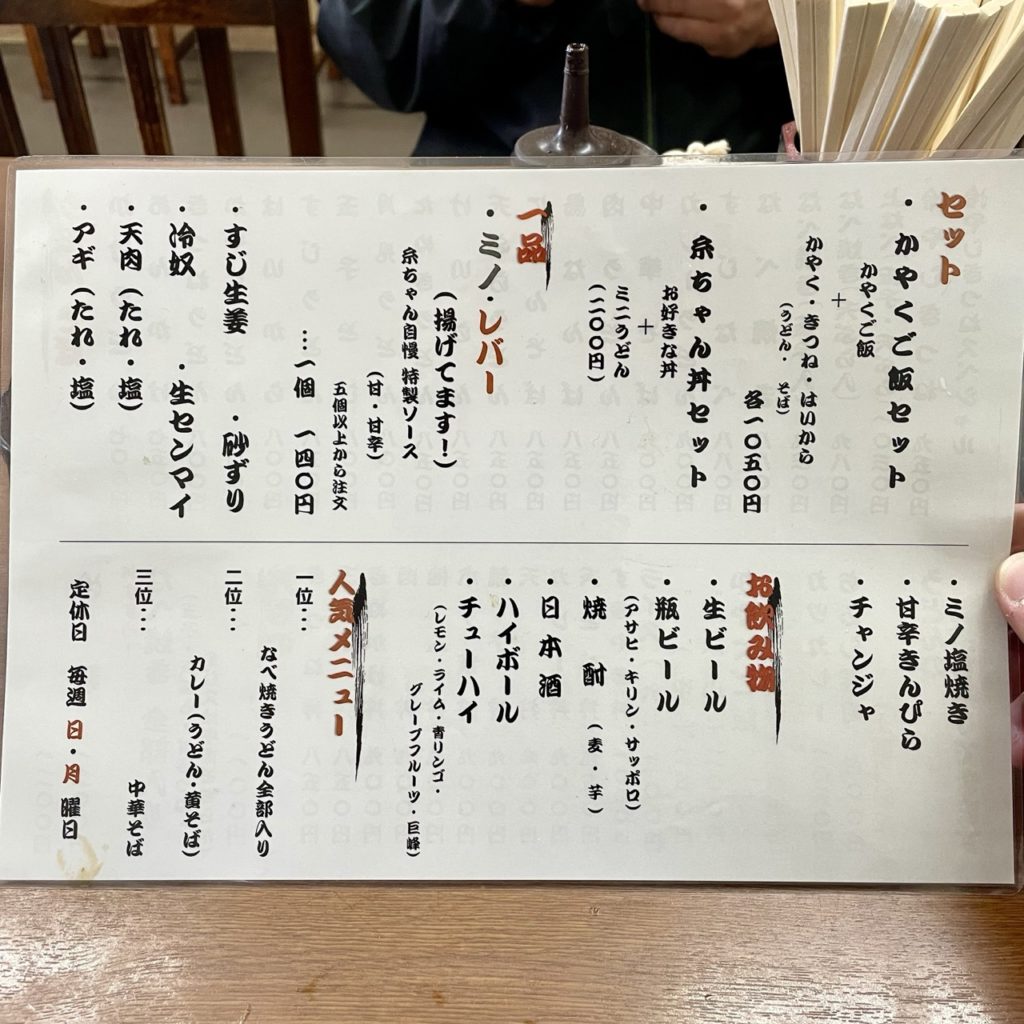 セット
・かやくご飯セット
かやくご飯
＋
かやく・きつね・はいから
（うどん・そば）
各一〇五〇円
・糸ちゃん丼セット
お好きな丼
＋
ミニうどん
（二〇〇円）
一品
・ミノ・レバー
（揚げてます！）
糸ちゃん自慢 特製ソース
（甘・甘辛）
五個以上から注文
…一個 一四〇円
・すじ生姜 ・砂ずり
・冷奴 ・生センマイ
・天肉（たれ・塩）
・アギ（たれ・塩）
・ミノ塩焼き
・甘辛きんぴら
・チャンジャ
お飲み物
・生ビール
・瓶ビール
（アサヒ・キリン・サッポロ）
・焼 酎 （麦・芋）
・日本酒
・ハイボール
・チューハイ
（レモン・ライム・青リンゴ・
グレープフルーツ・巨峰）
人気メニュー
一位…
なべ焼きうどん全部入り
二位…
カレー（うどん・黄そば）
三位…
中華そば
定休日 毎週 日・月 曜日